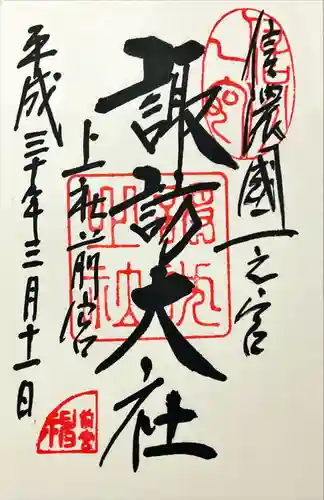 信濃國一之宮
諏訪大社
上社前宮
平成三十年三月十一日
前宮